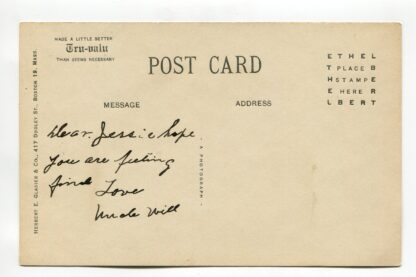 MADE A LITTLE BETTER
Tru-valu
THAN SEEMS NECESSARY
POST CARD
ETHEL
T PLACE B
H STAMP E
E HERE R
LBERT
MESSAGE
ADDRESS
Dear Jessie hope
you are feeling
fine Love
Uncle Will
- A PHOTOGRAPH -
HERBERT E. GLASIER & CO., 417 DUDLEY ST., BOSTON 19, MASS.